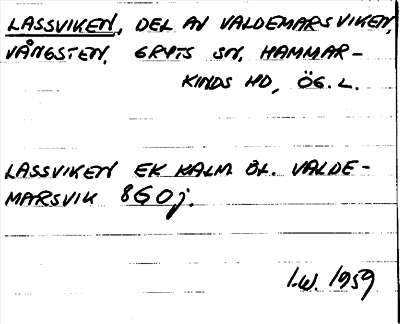 LASSVIKEN, DEL AV VALDEMARSVIKEN,
VÅNGSTEN, GRYTS SN, HAMMAR-
KINDS HD, ÖG. L.
LASSVIKEN EK KALM BL. VALDE-
MARSVIK 8G0j.
I.W. 1959